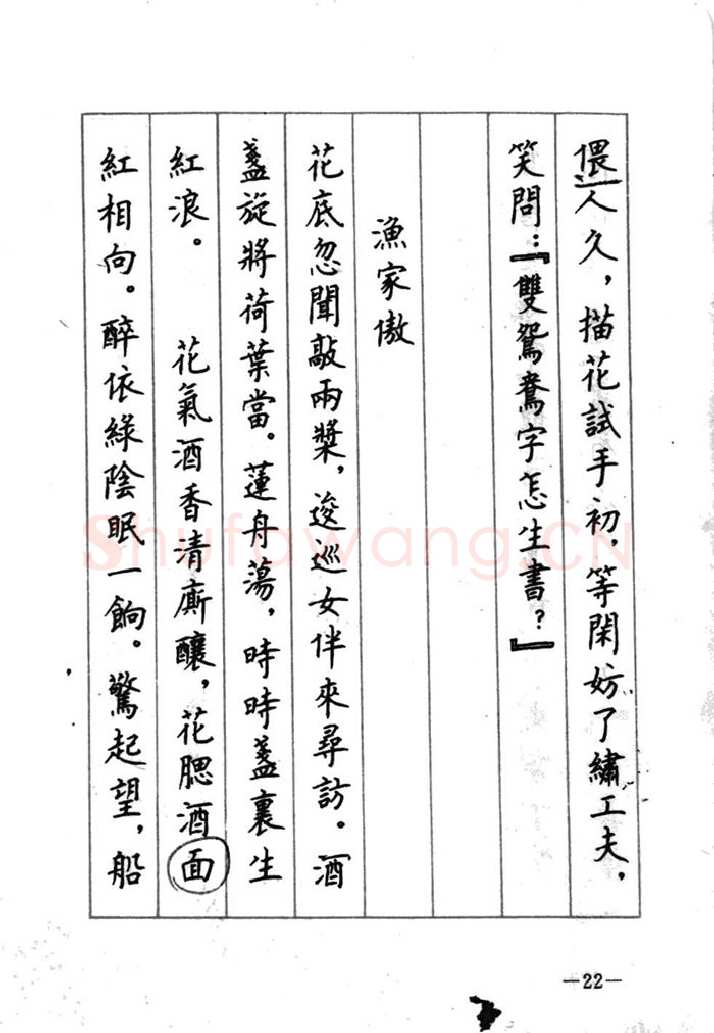 偎人久，描花試手初。等閑妨了繡工夫，
笑問：『雙鴛鴦字怎生書？』
漁家傲
花底忽聞敲兩槳，逡巡女伴來尋訪。酒
盞旋將荷葉當。蓮舟蕩，時時盞裏生
紅浪。 花氣酒香清廝釀，花腮酒面
紅相向。醉依綠陰眠一餉。驚起望，船
—22—
Shufawang.CN